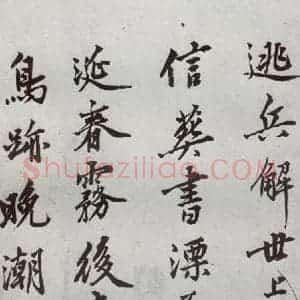 逃兵解世上
信葬書漂
涎春霧後
鳥跡晚潮
Shufaziliao.COM